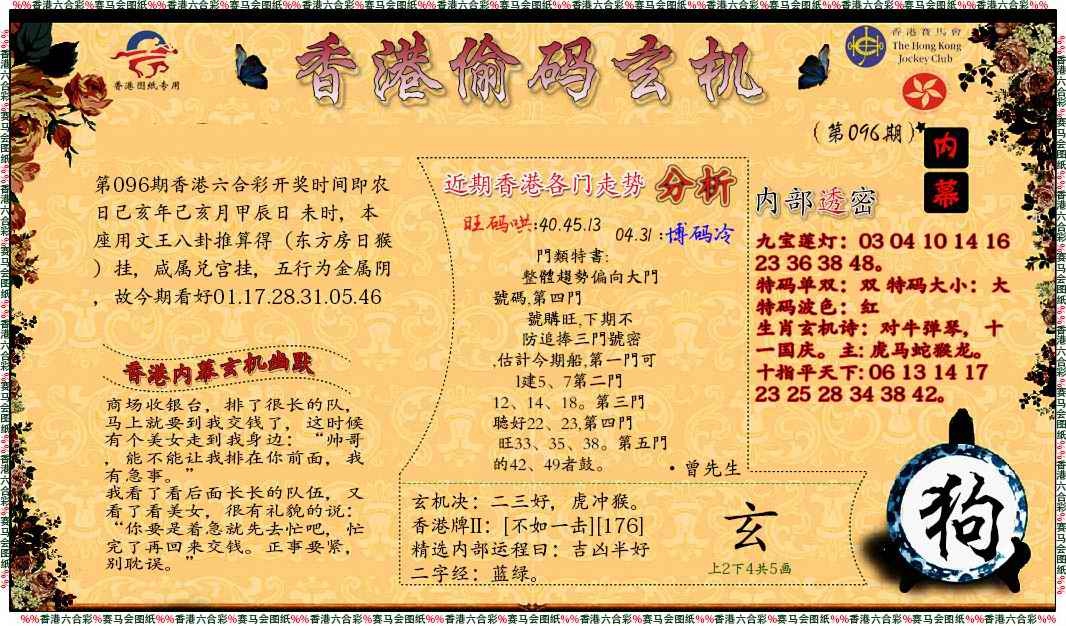 %%香港六合彩%赛马会图纸%%香港六合彩%赛马会图纸%%香港六合彩%赛马会图纸%%香港六合彩%赛马会图纸%%香港六合彩%赛马会图纸%%香港六合彩%赛马会图纸%%香港六合彩%%
香港图纸专用
香港偷码玄机
香港賽馬會
The Hong Kong
Jockey Club
(第096期)
内
幕
第096期香港六合彩开奖时间即农
日己亥年己亥月甲辰日 未时，本
座用文王八卦推算得（东方房日猴
）挂，咸属兑宫挂，五行为金属阴
，故今期看好01.17.28.31.05.46
香港内幕玄机幽默
商场收银台，排了很长的队，
马上就要到我交钱了，这时候
有个美女走到我身边：“帅哥
，能不能让我排在你前面，我
有急事。”
我看了看后面长长的队伍，又
看了看美女，很有礼貌的说：
“你要是着急就先去忙吧，忙
完了再回来交钱。正事要紧，
别耽误。”
近期香港各门走势 分析
旺码哄:40.45.13
04.31 :博码冷
門類特書:
整體趨勢偏向大門
號碼,第四門
號購旺,下期不
防追捧三門號密
,估計今期船,第一門可
1建5、7第二門
12、14、18。第三門
聽好22、23,第四門
旺33、35、38。第五門
的42、49者鼓。
·曾先生
玄机决：二三好，虎冲猴。
香港牌II：[不如一击][176]
精选内部运程曰：吉凶半好
二字经：蓝绿。
玄
上2下4共5画
内部透密
九宝莲灯：03 04 10 14 16
23 36 38 48。
特码单双：双 特码大小：大
特码波色：红
生肖玄机诗：对牛弹琴，十
一国庆。主: 虎马蛇猴龙。
十指平天下: 06 13 14 17
23 25 28 34 38 42。
狗
%%香港六合彩%赛马会图纸%%香港六合彩%赛马会图纸%%香港六合彩%赛马会图纸%%香港六合彩%赛马会图纸%%香港六合彩%赛马会图纸%%香港六合彩%赛马会图纸%%香港六合彩%%